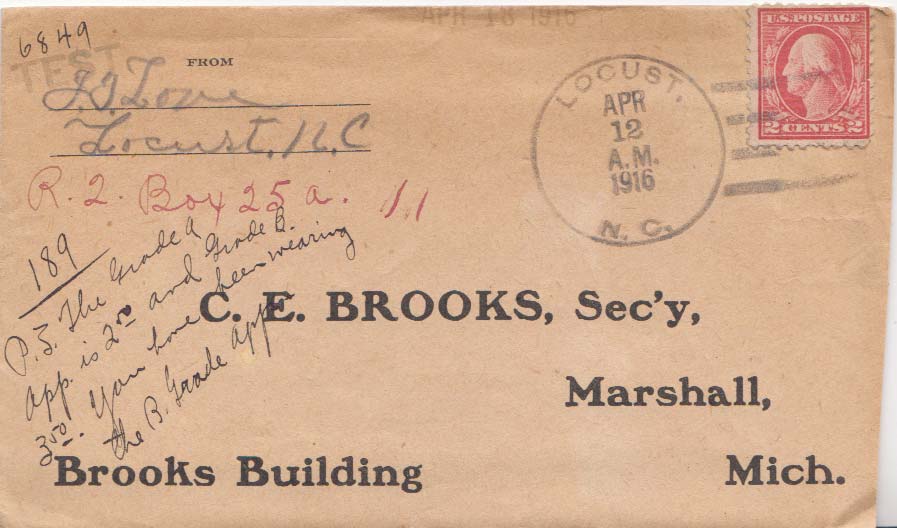 APR 18 1916
6849
TEST
FROM
J. G. Love
Locust, N.C
R. 2. Box 25a. 11
LOCUST,
APR
12
A.M.
1916
N. C.
U.S. POSTAGE
2 CENTS 2
189
P.S. The Grade A
App. is 2.00 and Grade B.
3.50. You have been wearing
the B. Grade App
C. E. BROOKS, Sec'y,
Marshall,
Brooks Building Mich.